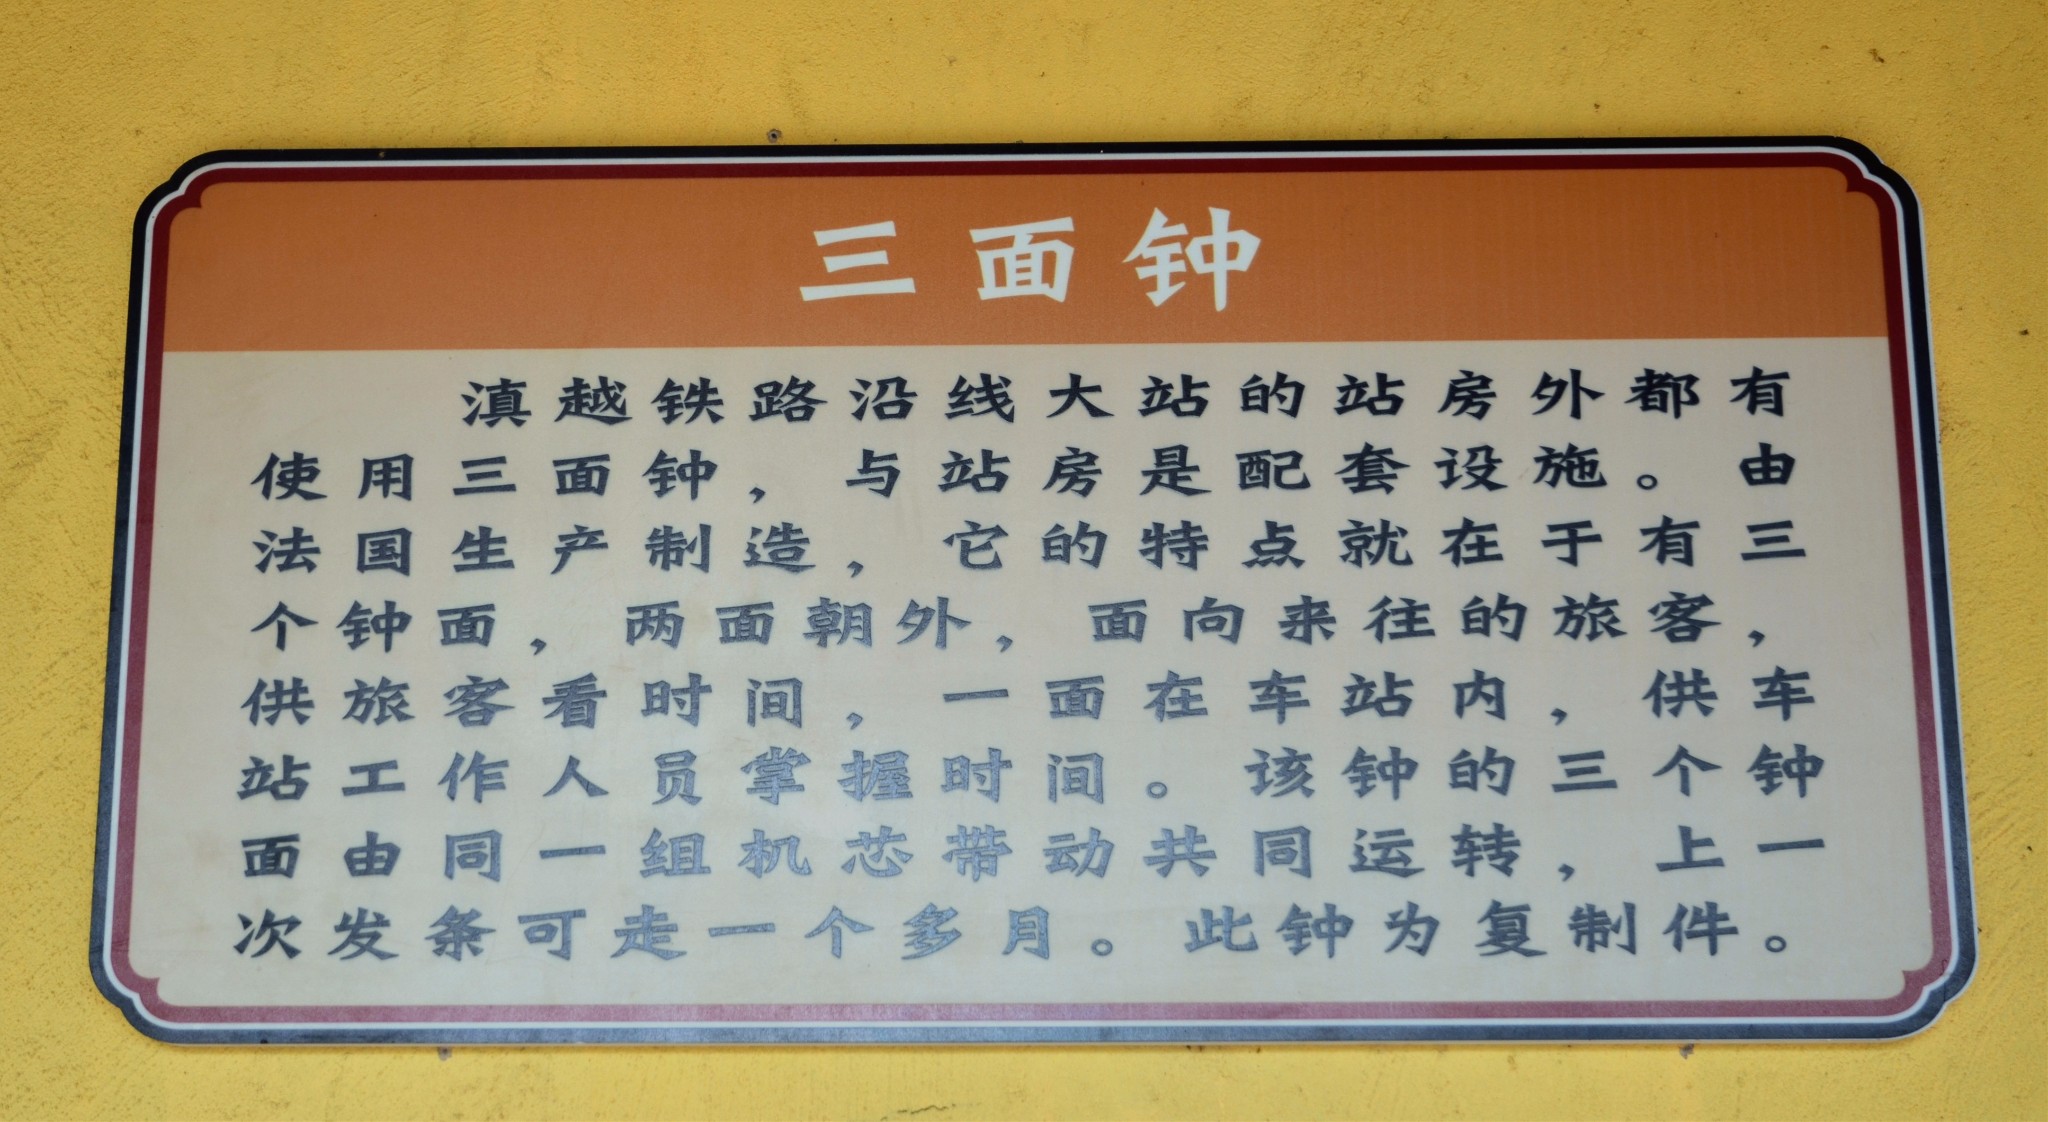 三面钟
滇越铁路沿线大站的站房外都有
使用三面钟，与站房是配套设施。由
法国生产制造，它的特点就在于有三
个钟面，两面朝外，面向来往的旅客，
供旅客看时间，一面在车站内，供车
站工作人员掌握时间。该钟的三个钟
面由同一组机芯带动共同运转，上一
次发条可走一个多月。此钟为复制件。